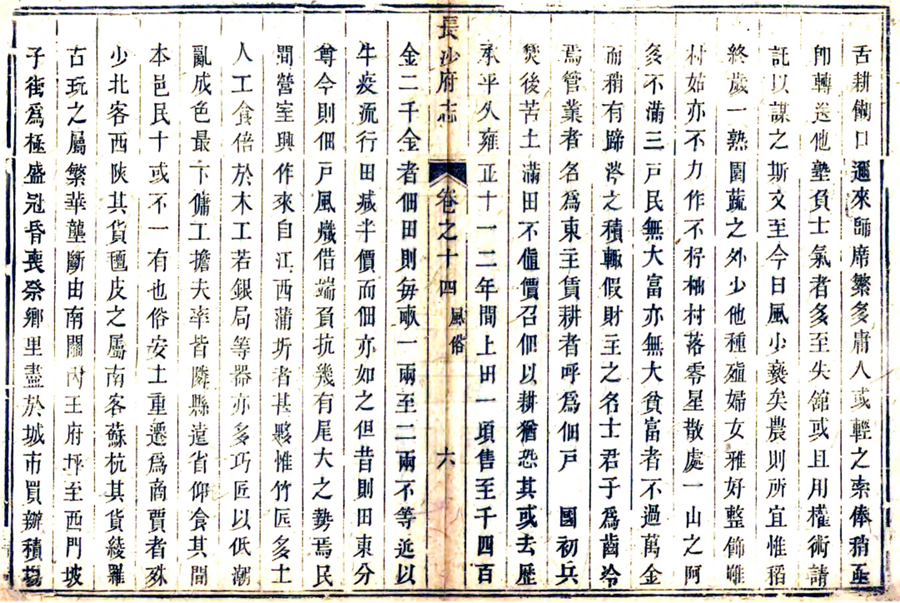 舌耕餬口邇來師席繁多庸人或輕之索俸稍至
卽轉送他塾負士氣者多至失館或且用權術請
託以謀之斯文至今日風少衰矣農則所宜惟稻
終歲一熟園蔬之外少他種殖婦女雅好整飾雖
村姑亦不力作不杼柚村落零星散處一山之阿
多不滿三戶民無大富亦無大貧富者不過萬金
而稍有蹄涔之積輒假財主之名士君子爲齒冷
焉管業者名爲東主賃耕者呼爲佃戶 國初兵
燹後苦土滿田不值價召佃以耕猶恐其或去歷
承平久雍正十一二年間上田一頃售至千四百
長沙府志 卷之十四 風俗 六
金二千金者佃田則每畝一兩至二兩不等近以
牛疫流行田減半價而佃亦如之但昔則田東分
尊今則佃戶風熾借端負抗幾有尾大之勢焉民
間營室興作來自江西蒲圻者甚夥惟竹匠多土
人工食倍於木工若銀局等器亦多巧匠以低潮
亂成色最下傭工擔夫率皆隣縣遠省仰食其間
本邑民十或不一有也俗安土重遷爲商賈者殊
少北客西陝其貨氊皮之屬南客蘇杭其貨綾羅
古玩之屬繁華壟斷由南關內王府坪至西門坡
子街爲極盛冠昏喪祭鄉里盡於城市買辦積場